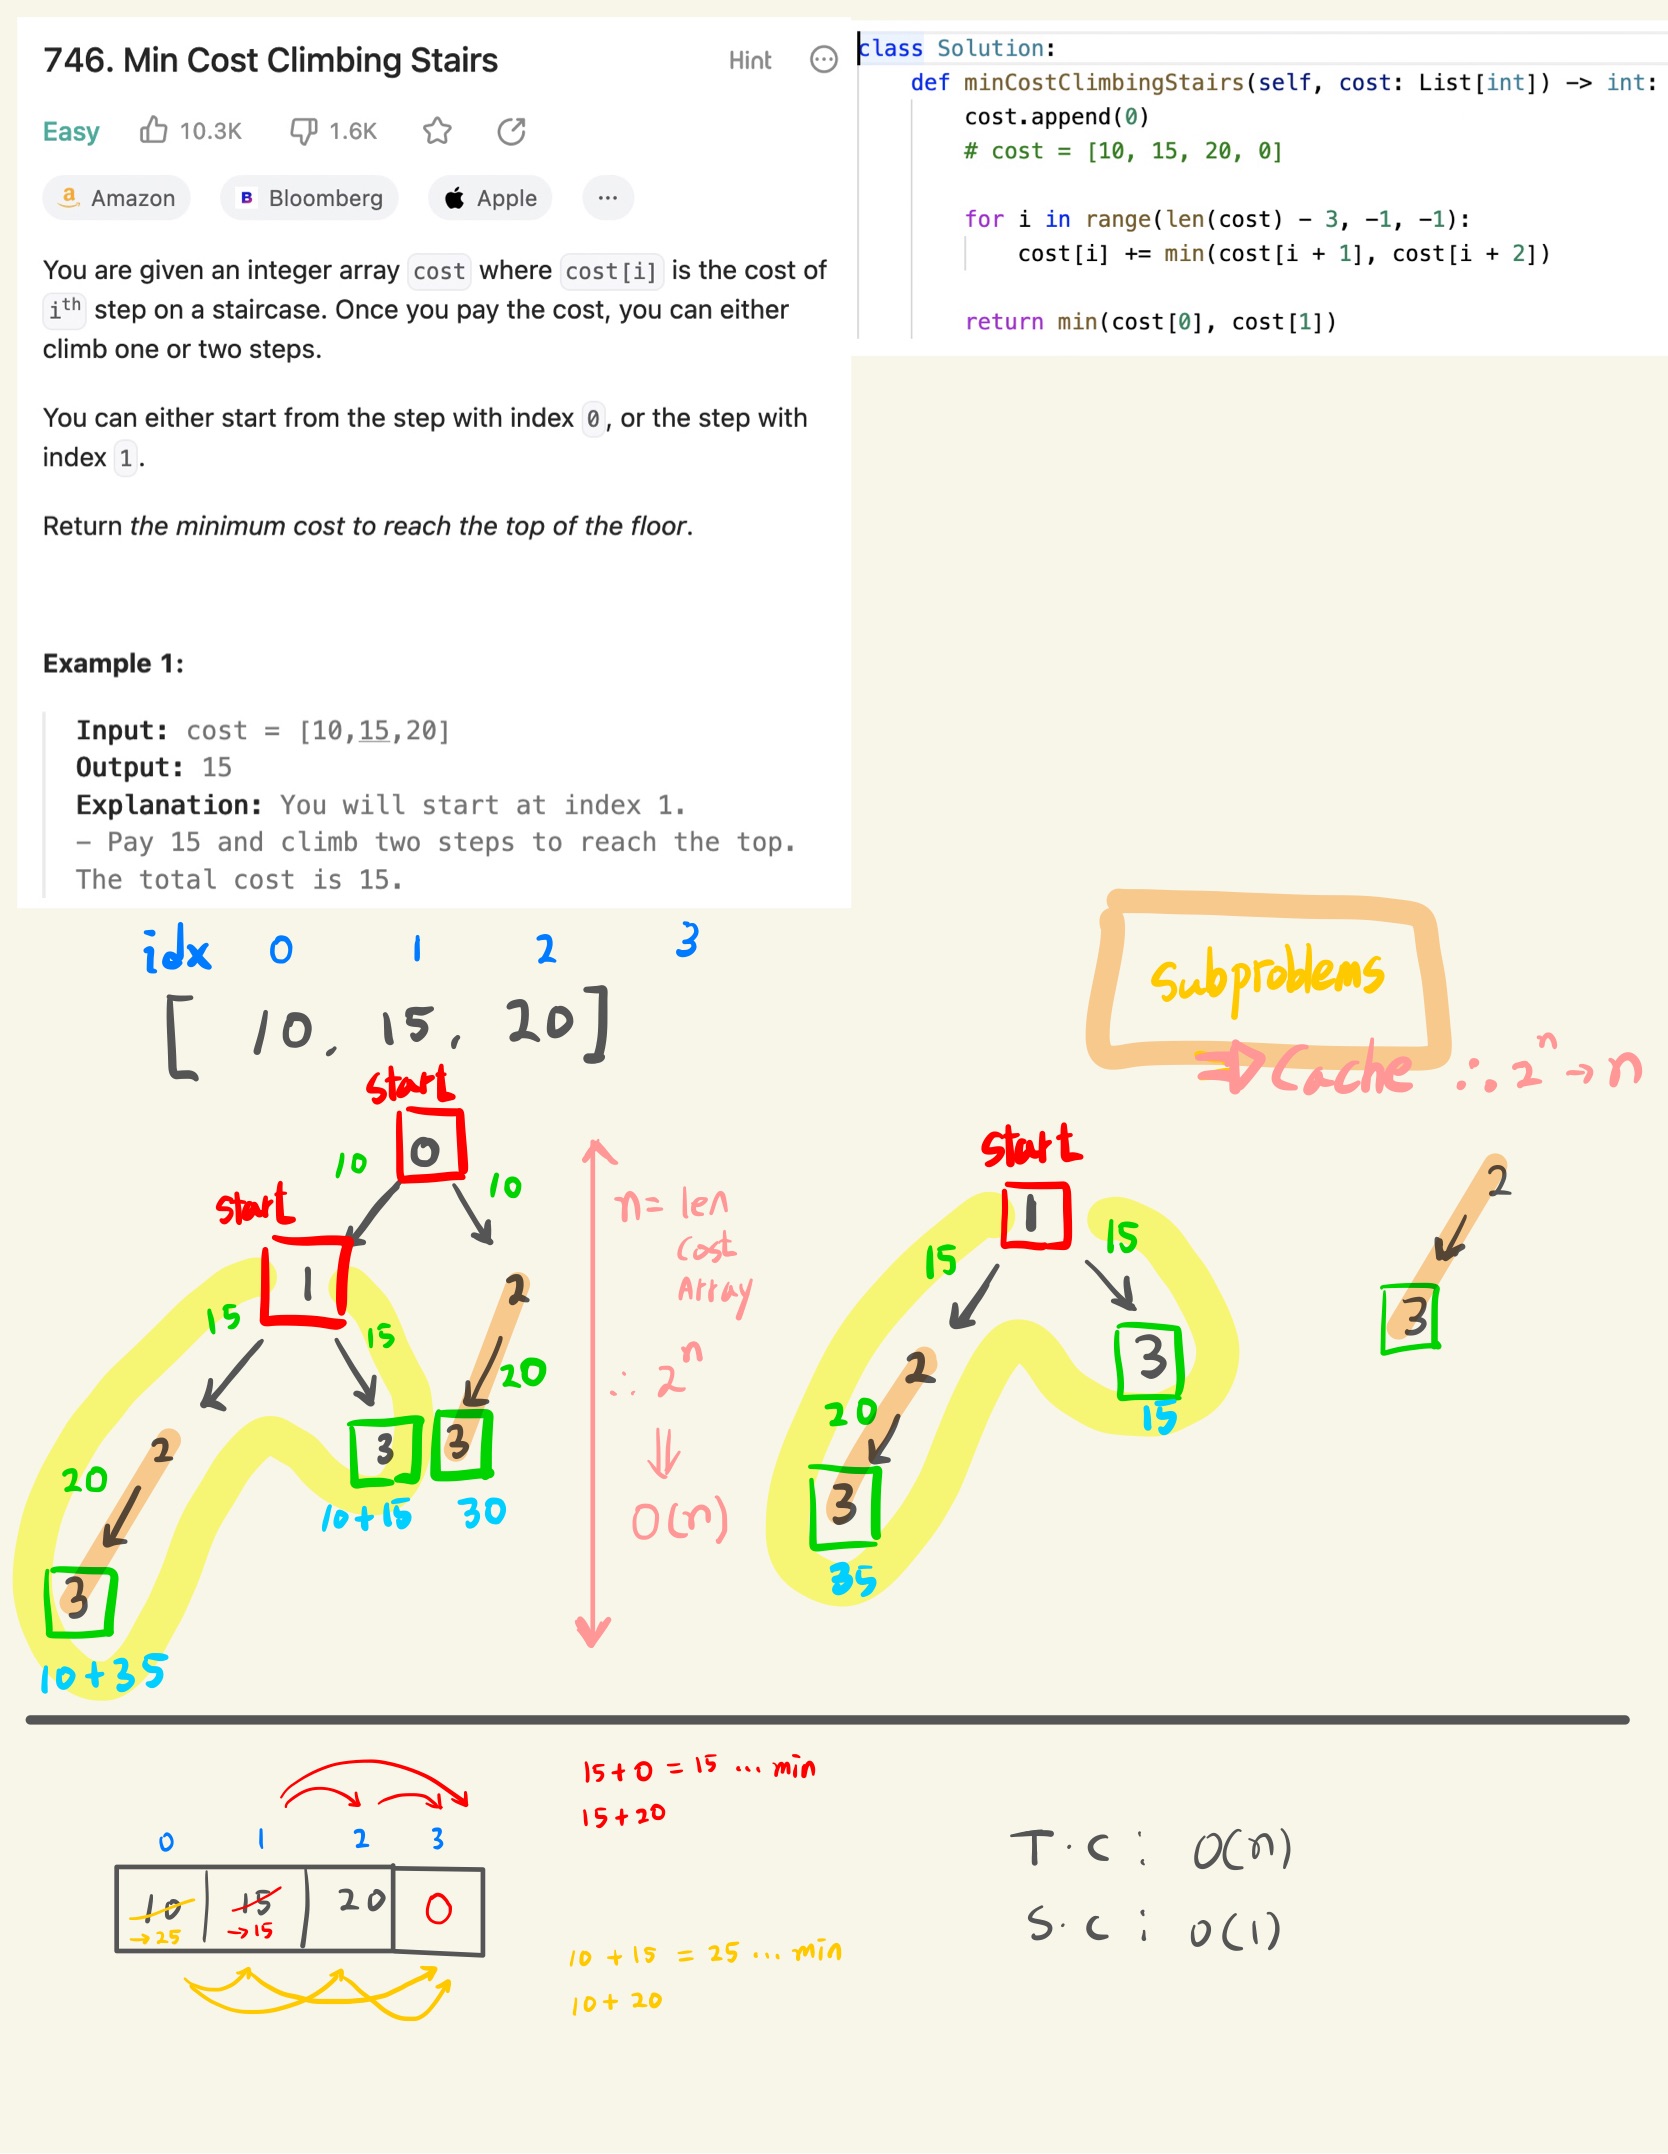 746. Min Cost Climbing Stairs
Hint
Easy 10.3K 1.6K
Amazon Bloomberg Apple ...
You are given an integer array cost where cost[i] is the cost of
ith step on a staircase. Once you pay the cost, you can either
climb one or two steps.
You can either start from the step with index 0, or the step with
index 1.
Return the minimum cost to reach the top of the floor.
Example 1:
Input: cost = [10,15,20]
Output: 15
Explanation: You will start at index 1.
- Pay 15 and climb two steps to reach the top.
The total cost is 15.
class Solution:
def minCostClimbingStairs(self, cost: List[int]) -> int:
cost.append(0)
# cost = [10, 15, 20, 0]
for i in range(len(cost) - 3, -1, -1):
cost[i] += min(cost[i + 1], cost[i + 2])
return min(cost[0], cost[1])
idx 0 1 2 3
[ 10, 15, 20 ]
Subproblems
⇒ Cache ∴ 2^n → n
start
0
10 10
start
1
15 15
2
20
3
10+35
3
10+15
2
20
3
30
n = len
Cost
Array
∴ 2^n
⇓
O(n)
start
1
15 15
2
20
3
35
3
15
2
3
0 1 2 3
10 15 20 0
→25 →15
15+0 = 15 ... min
15+20
10 + 15 = 25 ... min
10 + 20
T.C : O(n)
S.C : O(1)